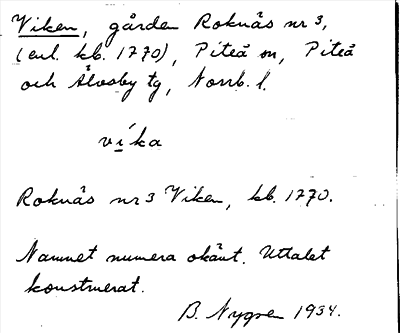 Viken, gården Roknäs nr 3,
(enl. kb. 1770), Piteå sn, Piteå
och Älvsby tg, Norrb. l.
víka
Roknäs nr 3 Viken, kb. 1770.
Namnet numera okänt. Uttalet
konstruerat.
B. Nygren 1934.